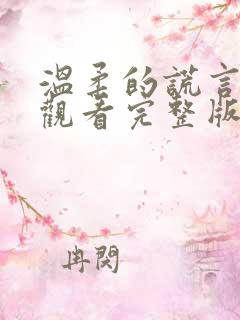 溫柔的謊言
觀看完整版
冉閔